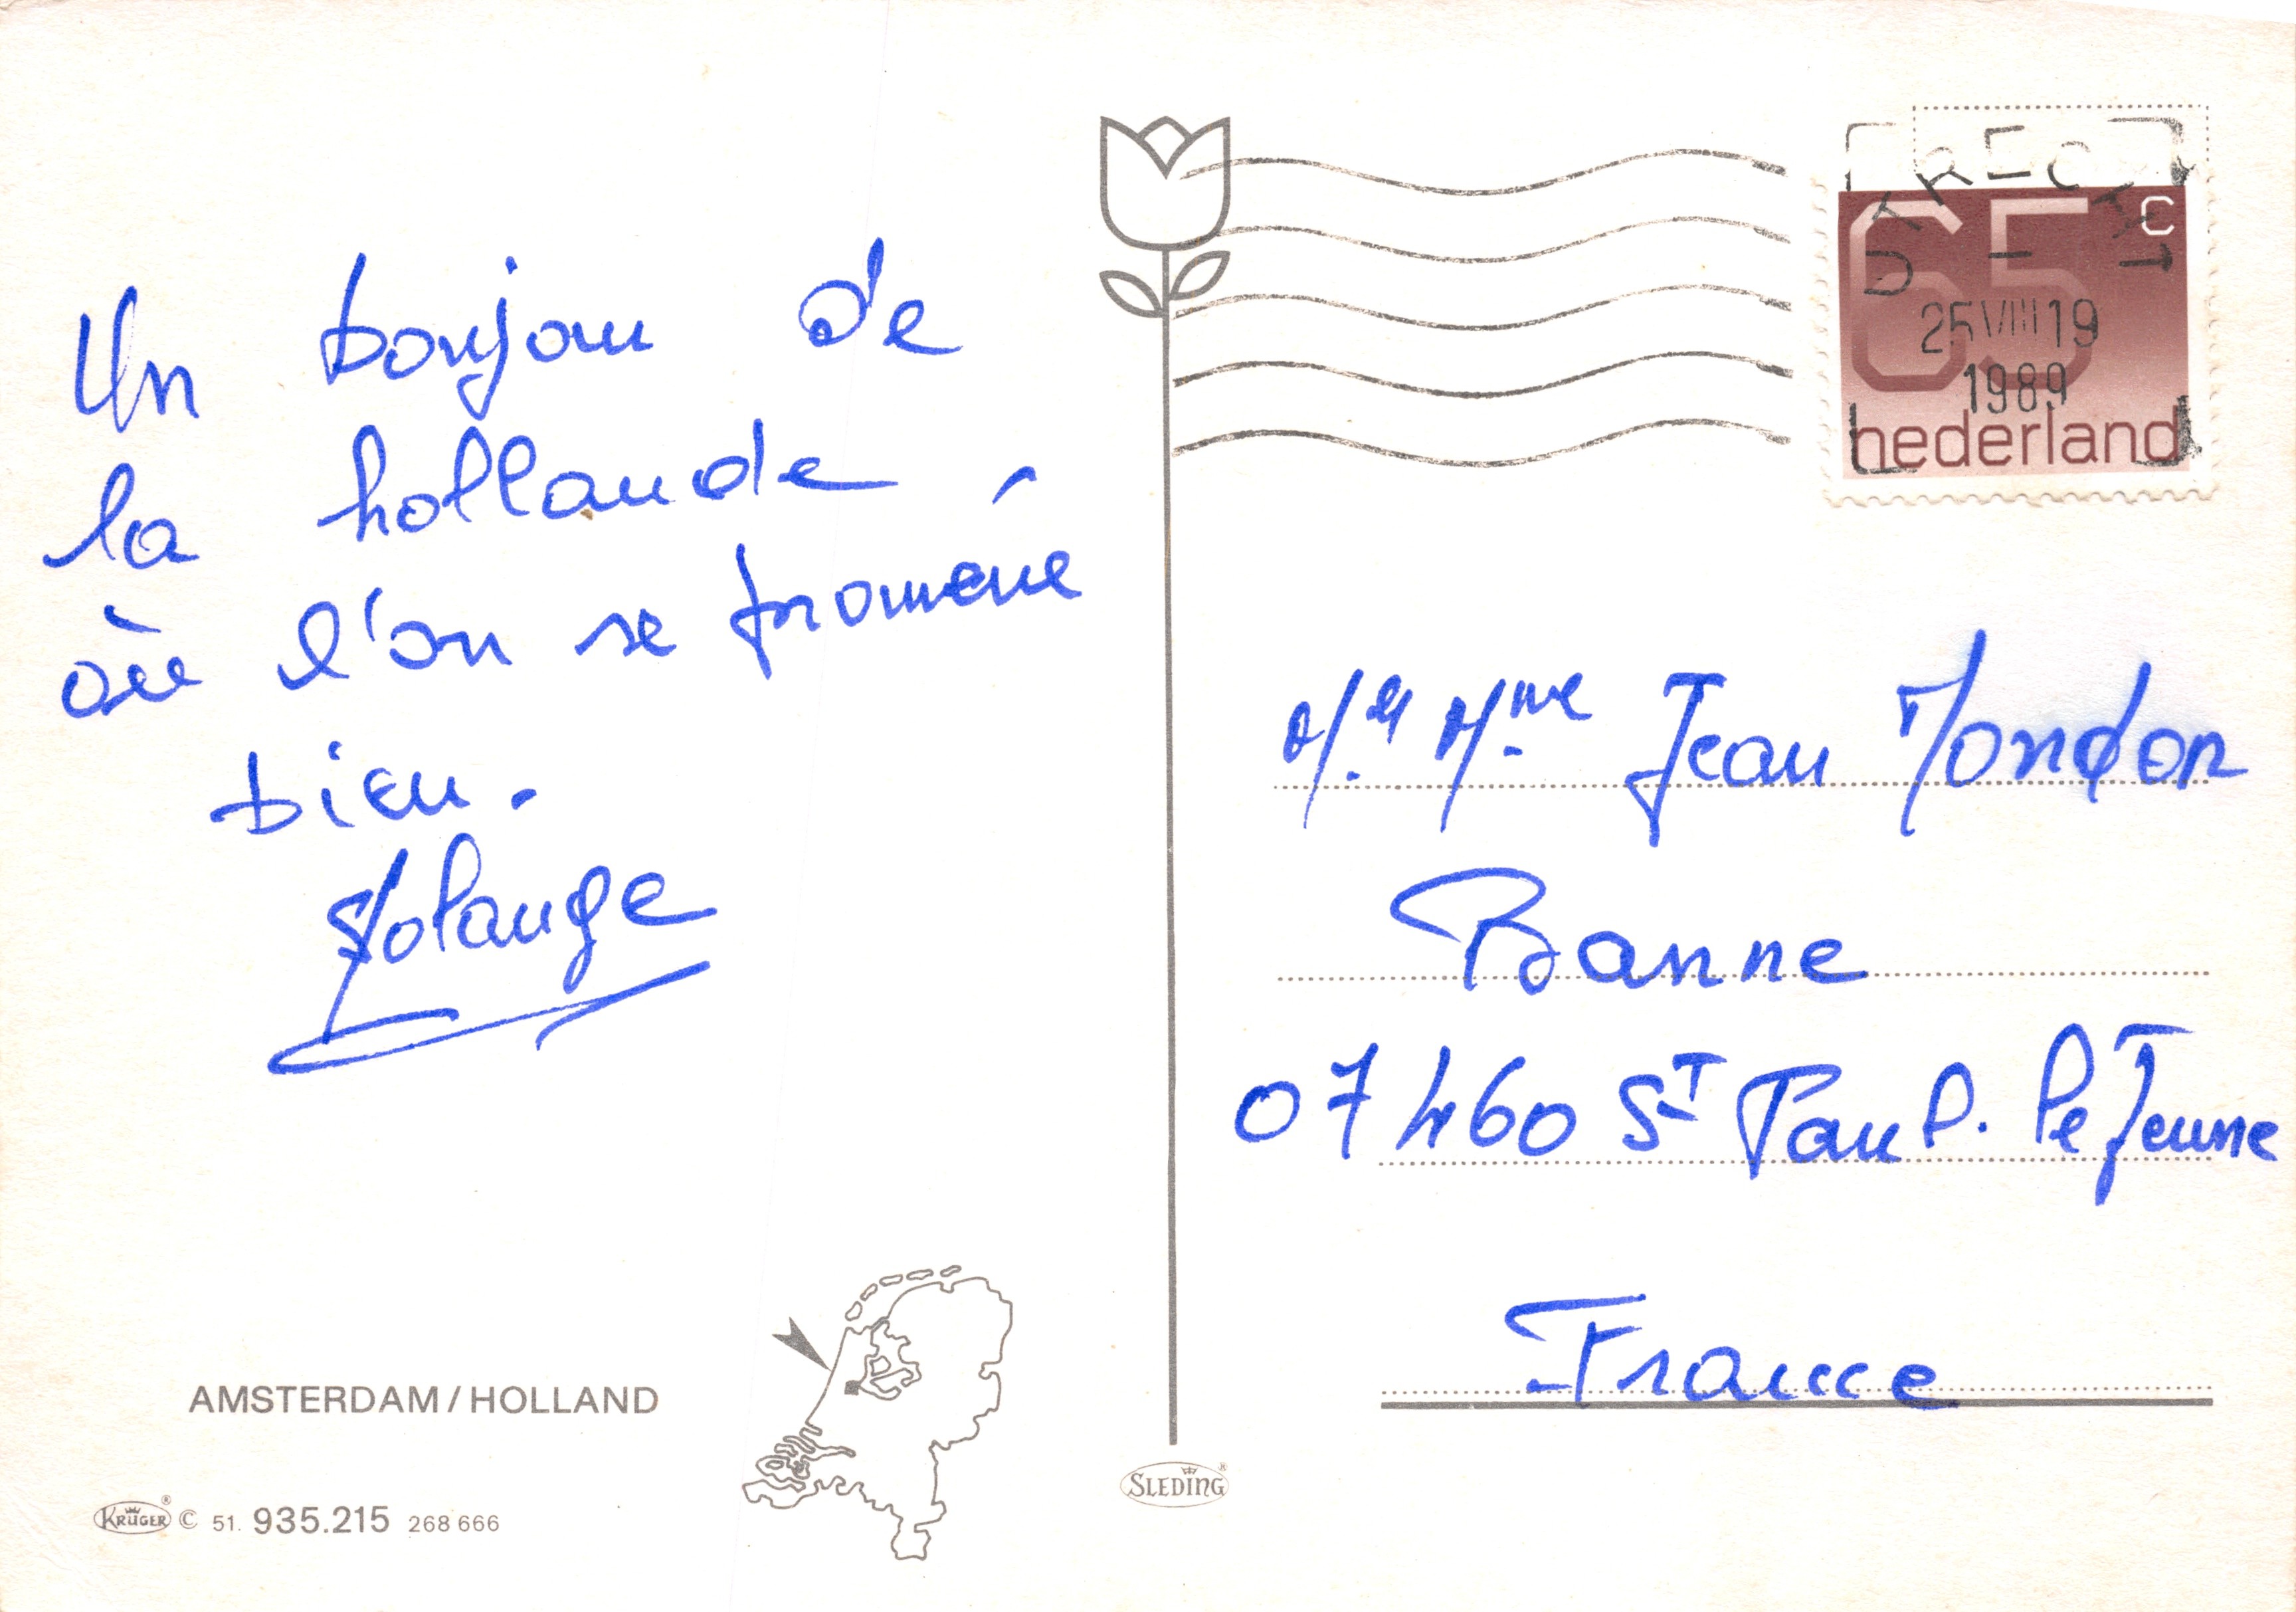 Un bonjour de
la hollande
où l'on se promène
bien.
Solange
AMSTERDAM / HOLLAND
KRÜGER ® © 51. 935.215 268 666
SLEDING ®
UTRECHT
25 VIII 19
1989
65 c
nederland
M. et Mme Jean Mondon
Banne
07460 ST Paul. le Jeune
France